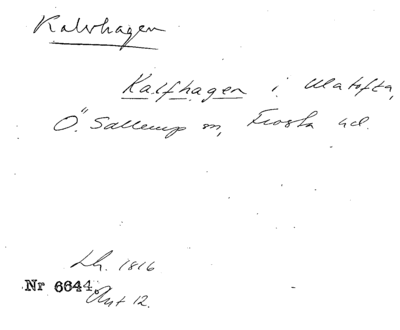 Kalvhagen
Kalfhagen i Ulatofta,
Ö. Sallerup sn, Frosta hd.
Lh. 1816
Nr 6644. Akt 12.